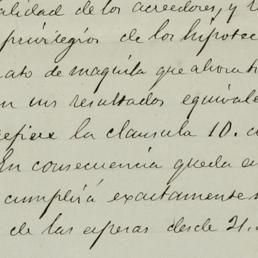 alidad de los acreedores, y
privilegios de los hipotec
ato de maquila que ahora
en sus resultados equivale
efiere la clausula 10.
En consecuencia queda
cumplirá exactamente
de las esperas desde 21.